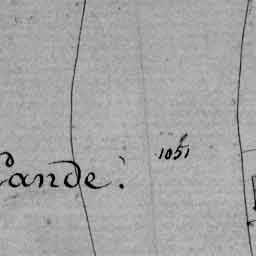 Lande.
1051